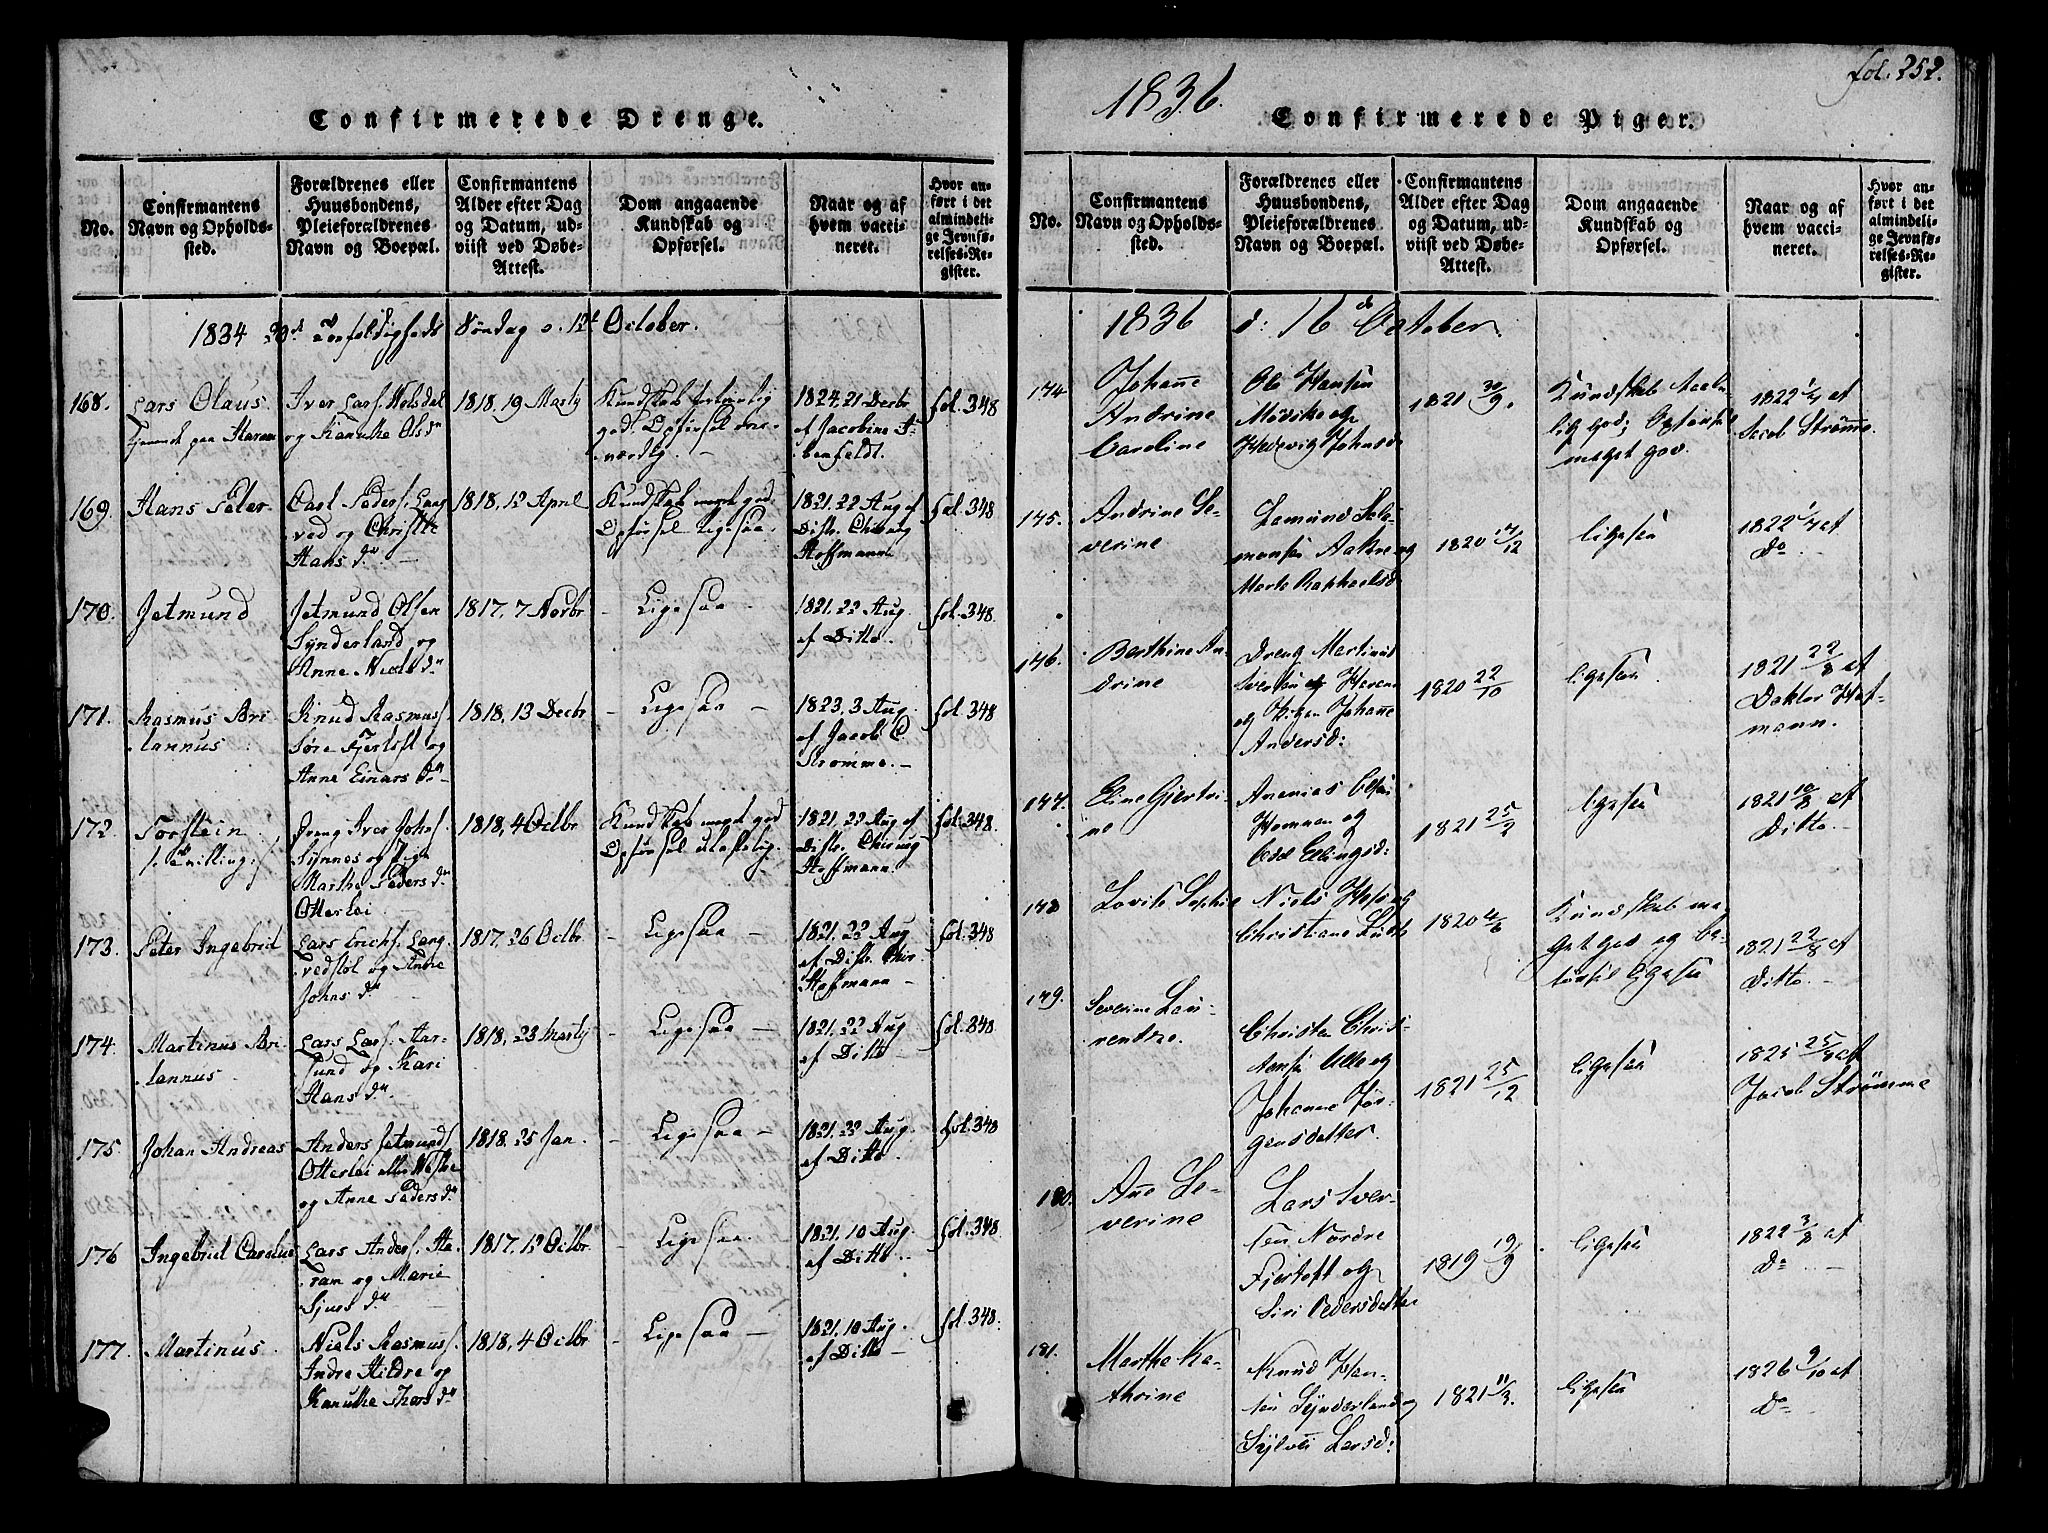 Confirmerede Drenge.
No.
Confirmantens
Navn og Opholds-
sted.
Forældrenes eller
Huusbondens,
Pleieforældrenes
Navn og Boepæl.
Confirmantens
Alder efter Dag
og Datum, ud-
viist ved Døbe-
Attest.
Dom angaaende
Kundskab og
Opførsel.
Naar og af
hvem vacci-
neret.
Hvor an-
ført i det
almindeli-
ge Jevnfø-
relses-Re-
gister.
1834 20de Søndag 12t October.
168.
Lars Olaus
paa Haram
Iver Lars.
og Kanutke Olsdr
1818, 19 Martj
Kundskab
god. Opførsel
1824. 21 Decbr
af Jacobine
fol. 348
169.
Hans Peter
Carl Peders. Long
ved og Christie
Hans dr
1818, 12 April
Kundskab meget god.
Opførsel Ligesaa.
1821. 22 Aug af
Distr. Chirurg
Hoffmann
fol. 348
170.
Jetmund
Jetmund Olsen
Synderland og
Anne Niels dr
1817, 7 Novbr
Ligesaa
1821. 22 Aug.
af Ditto.
fol. 348.
171.
Rasmus Bri
tannus
Knud Rasmuss.
Søre Fjertoft og
Anne Einars dr
1818, 13 Decbr
Ligesaa
1823. 3 Aug.
af Jacob C.
Strømme.
fol. 348
172.
Torstein
/: Tvilling :/
Dreng Iver Johs.
Synnes og Pige
Marthe Peders dr
Otterlei
1818, 4 Octbr
Kundskab meget god
Opførsel ulastelig.
1821. 22 Aug af
Distr. Chirurg
Hoffmann.
fol. 348.
173.
Peter Ingebrict
Lars Erichs. Long
vedstøl og Anne
Johns dr
1817, 26 Octbr
Ligesaa
1821. 22 Aug
af Distr. Chir.
Hofmann
fol. 348
174.
Martinus Bri
tannus.
Lars Lars. Aar-
sund og Kari
Hans dr
1818, 23 Martj
Ligesaa
1821. 22 Aug
af Ditto
fol. 348
175.
Johan Andreas
Anders Jetmunds.
Otterlei
og Anne Peders dr
1818. 25 Jan.
Ligesaa
1821. 22 Aug.
af Ditto.
fol. 348
176
Ingebrict Carolus
Lars Anders. Ha-
ram og Marie
Sjurs dr
1817. 12 Octbr.
Ligesaa.
1821. 10 Aug.
af Ditto.
fol. 348
177.
Martinus.
Niels Rasmuss.
Indre Hildre og
Kanutke Thors dr
1818, 4 Octbr
Ligesaa
1821. 10 Aug.
af Ditto
fol. 348.
1836.
Confirmerede Piger.
fol. 252.
No.
Confirmantens
Navn og Opholds-
sted.
Forældrenes eller
Huusbondens,
Pleieforældrenes
Navn og Boepæl.
Confirmantens
Alder efter Dag
og Datum, ud-
viist ved Døbe-
Attest.
Dom angaaende
Kundskab og
Opførsel.
Naar og af
hvem vacci-
neret.
Hvor an-
ført i det
almindeli-
ge Jevnfø-
relses-Re-
gister.
1836 d: 16de October.
174
Johanne
Andrine
Caroline
Ole Hansen
og
Hedevig Johnsd
1821 30/9.
Kundskab
lig god; Opførsel
meget god.
1822 1/4 af
Jacob Strømme
175.
Andrine Se-
verine
Lemund Salo-
monsen Aakre og
Marte Raphaelsd
1820 17/12
ligesaa
1822 1/4 af
Do
176.
Berthine An-
drine
Dreng Martinus
Iversen
og Pigen Johanne
Andersd:
1820 22/10
ligesaa
1821 22/8 af
Doktor Hof-
mann.
177.
Eline Giertri-
ne
Ananias Olsen
og
Ellingsd:
1821 25/2
ligesaa
1821 10/8 af
Ditto.
178
Lovise Sophie
Niels og
Christiane
1820
Kundskab me-
get god og Op-
førsel ligesaa
1821 22/8 af
Ditto.
179.
Severine Lau-
rentze.
Christen Christ-
ensen Ulle og
Johanne Jør-
gensdatter.
1821 25/12
ligesaa
1825 25/9 af
Jacob Strømme
180.
Ane Se-
verine
Lars Iver-
sen Nordre
Fjertoft og
Siri Pedersdatter
1819 19/9
ligesaa
1822 3/8 af
Do
181.
Marthe Ka-
thrine
Knud Han-
sen Synderland og
Sylvei Larsd:
1821 11/3.
ligesaa
1826 9/10 af
Do